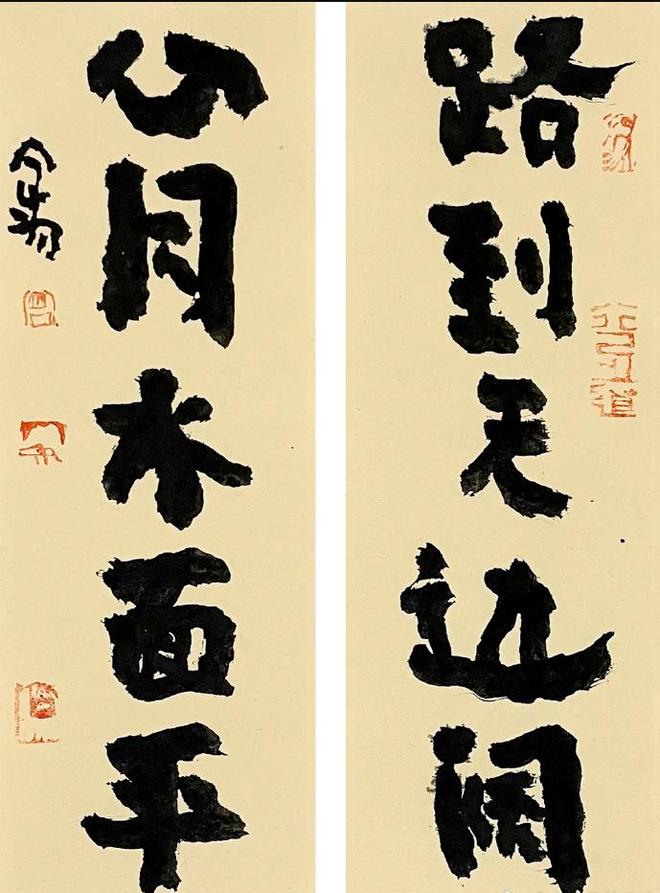 路到天边阔
心同水面平